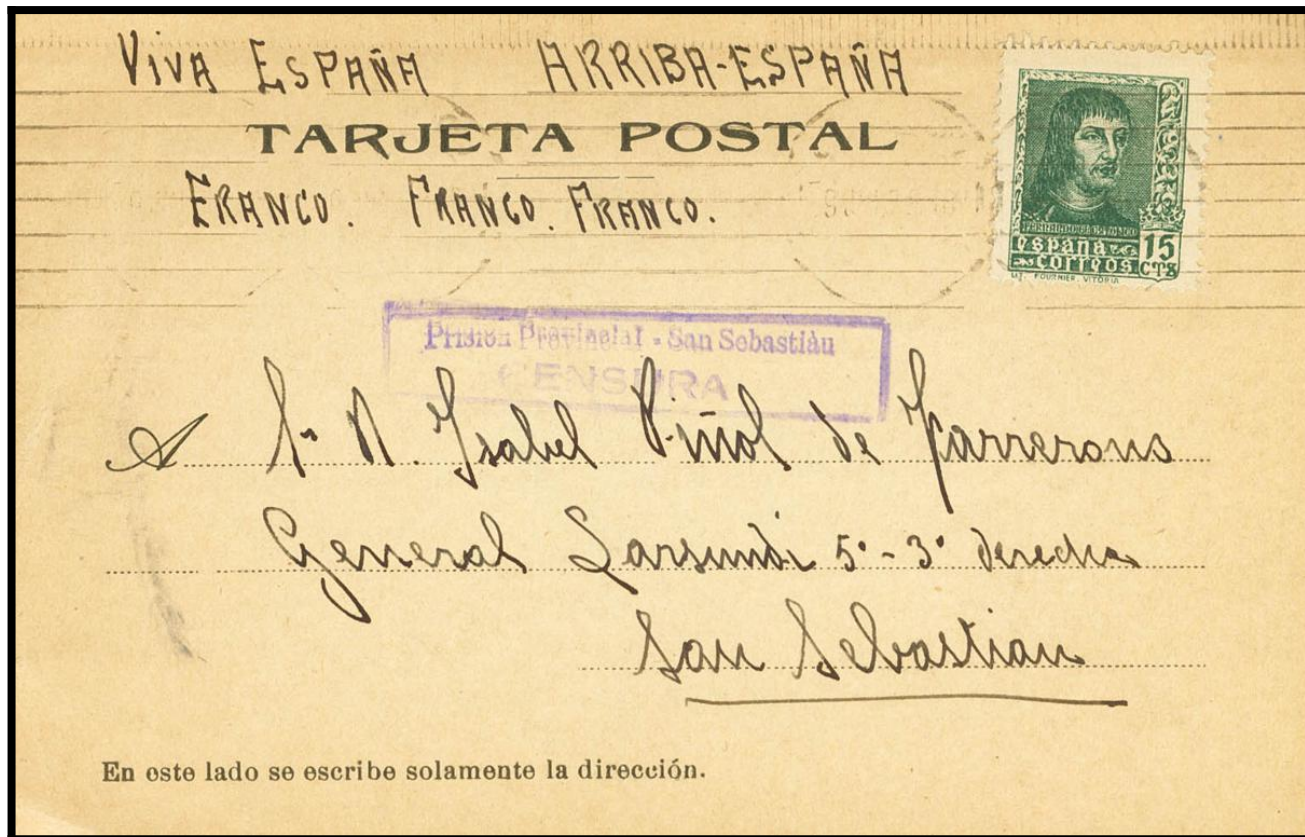 VIVA ESPAÑA ARRIBA-ESPAÑA
TARJETA POSTAL
FRANCO. FRANCO. FRANCO.
españa
correos
15
CTS
LIT. FOURNIER. VITORIA
Prisión Provincial - San Sebastiàn
CENSURA
A Sra D. Isabel Piñol de Farrerons
General Larsundi 5º - 3º derecha
San Sebastian
En este lado se escribe solamente la dirección.